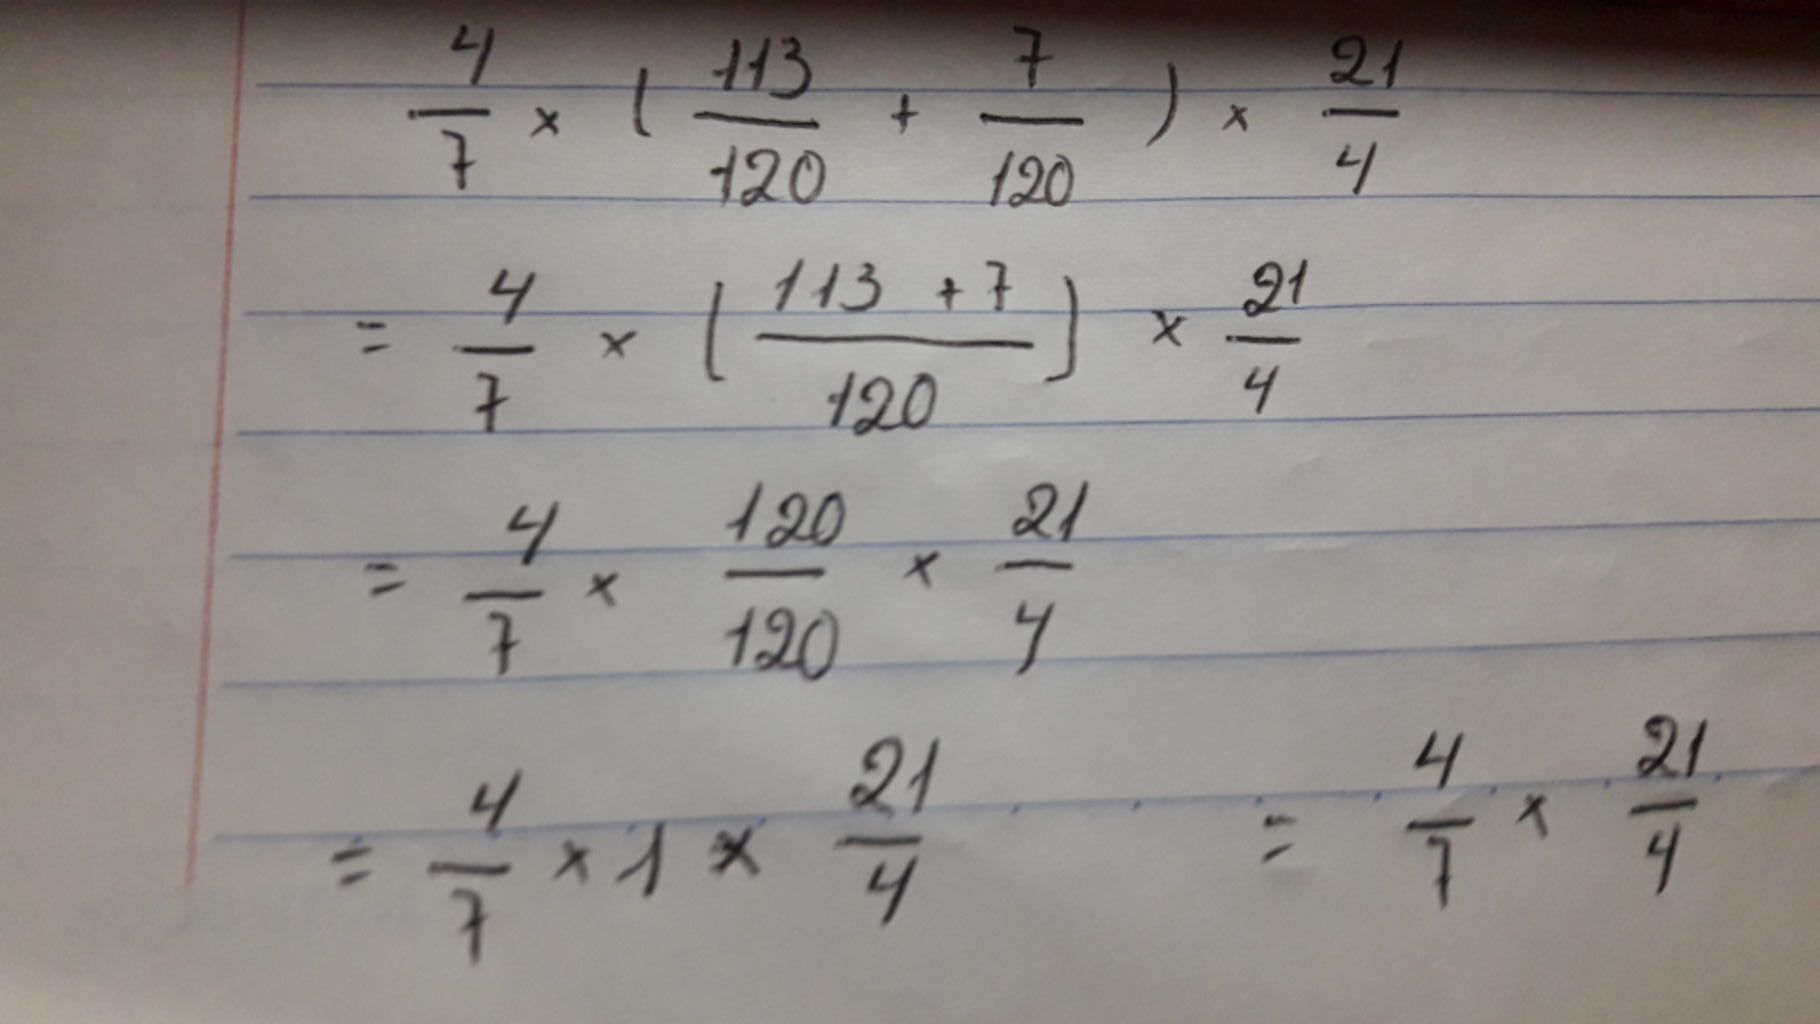 4/7 × (113/120 + 7/120) × 21/4
= 4/7 × [(113 + 7)/120] × 21/4
= 4/7 × 120/120 × 21/4
= 4/7 × 1 × 21/4 = 4/7 × 21/4